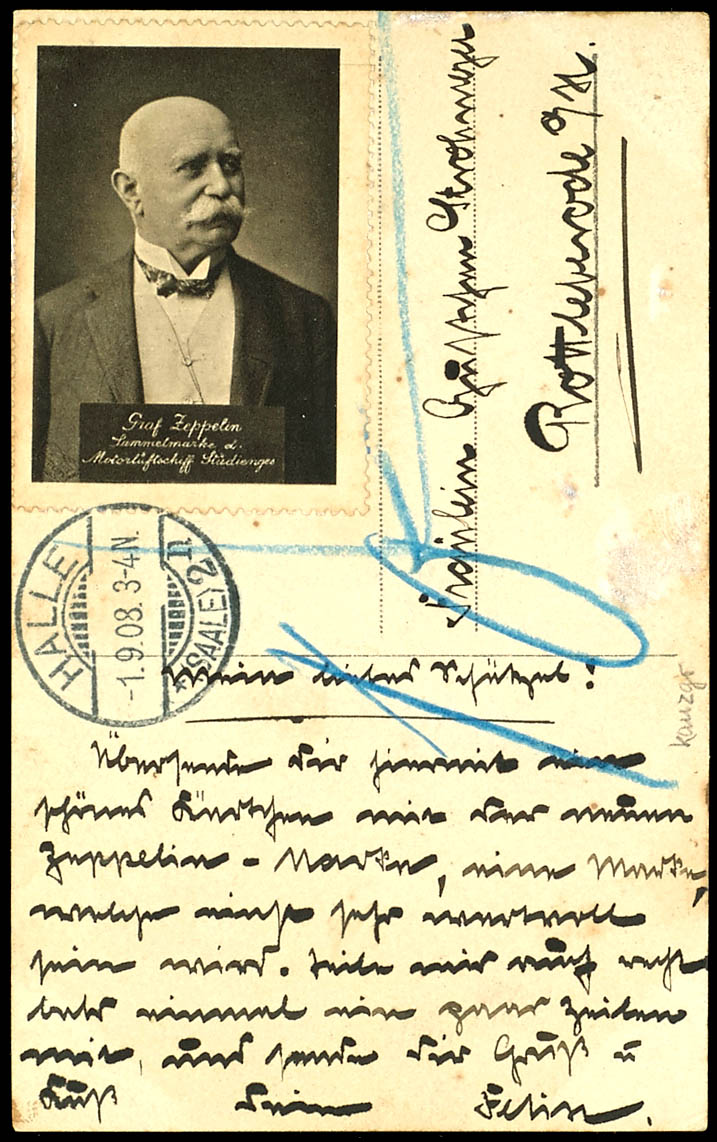 Graf Zeppelin
Sammelmarke d.
Motorluftschiff Studienges
HALLE (SAALE) 2 n
-1.9.08. 3-4N.
Fräulein
Rottleberode a/H.
Mein liebes Schützel!
Übersende dir hiermit ein
schönes Kärtchen mit der neuen
Zeppelin-Marke, eine Marke,
welche einst sehr wertvoll
sein wird. Teile mir auch recht
bald einmal ein paar Zeilen
mit, und sende dir Gruß u
Kuß Dein Felix.